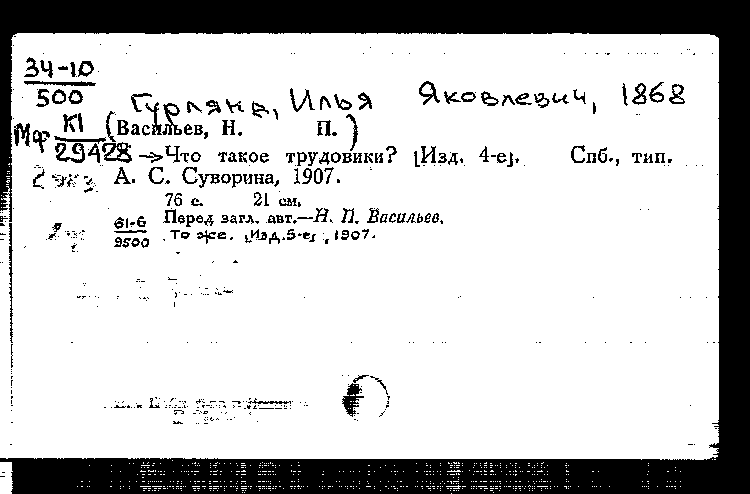 34-10
500
Гурлянд, Илья Яковлевич, 1868
Мф К1 (Васильев, Н. П.)
29428 →Что такое трудовики? [Изд. 4-е]. Спб., тип.
2 экз А. С. Суворина, 1907.
76 с. 21 см.
61-6 Перед загл. авт.—Н. П. Васильев.
9500 То же. [Изд. 5-е], 1907.